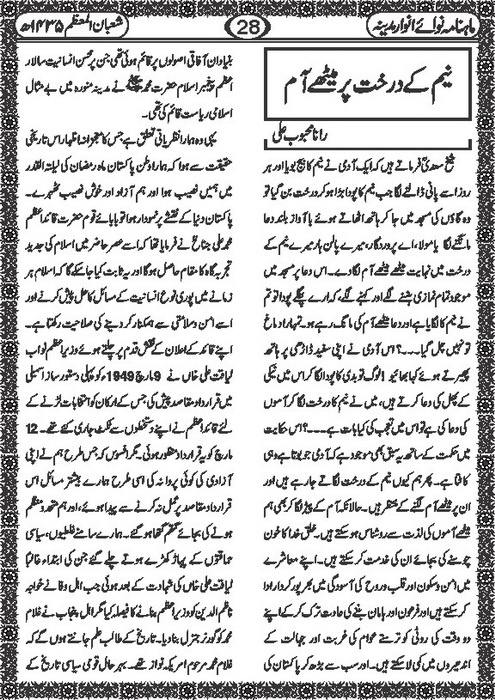 ماہنامہ نوائے انوارِ مدینہ
28
شعبان المعظم ۱۴۳۵ھ
نیم کے درخت پر میٹھے آم
رانا محبوب علی
شیخ سعدیؒ فرماتے ہیں کہ ایک آدمی نے نیم کا بیج بویا اور ہر
روز اسے پانی ڈالنے لگا جب نیم کا پودا بڑا ہو کر درخت بن گیا تو
وہ گاؤں کی مسجد میں جا کر ہاتھ اٹھائے ہوئے با آواز بلند دعا
مانگنے لگا یا مولا، اے پروردگار، میرے پالن ہار میرے نیم کے
درخت میں نہایت میٹھے میٹھے آم لگا دے۔ اس دعا پر مسجد میں
موجود تمام نمازی ہنسنے لگے اور کہنے لگے کہ ارے پگلے پودا تو تم
نے نیم کا لگایا ہے اور دعا میٹھے آم کی مانگ رہے ہو۔ تمہارا دماغ
تو نہیں چل گیا ۔۔۔؟ اس آدمی نے اپنی سفید داڑھی پر ہاتھ
پھیرتے ہوئے کہا بھائیو! لوگ تو بدی کا پودا لگا کر اس میں نیکی
کے پھل کی دعا کرتے ہیں، میں نے نیم کا درخت لگا کر آموں
کی دعا کی ہے تو اس میں تعجب کی کیا بات ہے ۔۔۔؟ اس حکایت
میں حکمت کے ساتھ یہ سبق بھی موجود ہے کہ آدمی جو بوتا ہے وہی
کاٹتا ہے۔ پھر ہم کیوں نیم کے درخت لگاتے جا رہے ہیں اور
ان پر میٹھے آم لگنے کے منتظر ہیں۔ حالانکہ آم کے پیڑ لگا کر بھی ہم
میٹھے آموں کی لذت سے روشناس ہو سکتے ہیں۔ خلق خدا کا خون
چوسنے کی بجائے ان کی خدمت کر سکتے ہیں۔ اپنے معاشرے
میں امن و سکون اور قلب و روح کی آسودگی میں بھرپور کردار ادا
کر سکتے ہیں اور فرعون اور ہامان بننے کی عادت ترک کر کے اپنے
دو وقت کی روٹی کو ترستے عوام کی غربت اور جہالت کے
اندھیروں میں کمی لا سکتے ہیں۔ اور سب سے بڑھ کر پاکستان کی
بنیاد ان آفاقی اصولوں پر قائم ہوئی تھی جن پر محسن انسانیت سالار
اعظم پیغمبر اسلام حضرت محمد ﷺ نے مدینہ منورہ میں بے مثال
اسلامی ریاست قائم کی تھی۔
یہی وہ ہمارا نظریاتی تعلق ہے جس کا معجزانہ اظہار اس تاریخی
حقیقت سے ہوا کہ ہمارا وطن پاکستان ماہ رمضان کی لیلتہ القدر
میں ہمیں نصیب ہوا اور ہم آزاد اور خوش نصیب ٹھہرے۔
پاکستان دنیا کے نقشے پر نمودار ہوا تو بابائے قوم حضرت قائد اعظم
محمد علی جناحؒ نے فرمایا تھا کہ اسے عصر حاضر میں اسلام کی جدید
تجربہ گاہ کا مقام حاصل ہو گا اور یہ ثابت کیا جا سکے گا کہ اسلام ہر
زمانے میں پوری نوع انسانیت کے مسائل کا حل پیش کرنے اور
اسے امن و سلامتی سے ہمکنار کر دینے کی صلاحیت رکھتا ہے۔
اپنے قائد کے اعلان کے نقش قدم پر چلتے ہوئے وزیر اعظم نواب
لیاقت علی خاں نے 9 مارچ 1949ء کو پہلی دستور ساز اسمبلی
میں قرارداد مقاصد پیش کی جس کے ارکان کو انتخابات لڑنے کے
لئے قائد اعظم نے اپنے دستخطوں سے ٹکٹ جاری کئے تھے۔ 12
مارچ کو یہ قرارداد منظور ہوئی۔ مگر افسوس کہ جس طرح ہم نے اپنی
آزادی کی کوئی پروا نہ کی اسی طرح ہمارے بیشتر مسائل اس
قرارداد مقاصد پر عمل نہ کرنے سے پیدا ہوئے، اور ہم متحد و منظم
ہونے کی بجائے گتھم گتھا ہو گئے۔ ہمارے سامنے غلطیوں، سیاسی
حماقتوں کے پہاڑ کھڑے ہوتے چلے گئے جن کی ابتداء غالباً
لیاقت علی خاں کی شہادت کے بعد ہوئی جب اہل وفا نے خواجہ
ناظم الدین کو وزیر اعظم بنانے کا فیصلہ کیا مگر اہل پنجاب نے غلام
محمد کو گورنر جنرل بنا دیا۔ تاریخ کے طالب علم جانتے ہوں گے کہ
غلام محمد مرحوم امریکہ نواز تھے۔ بہرحال قومی سیاسی تاریخ کے